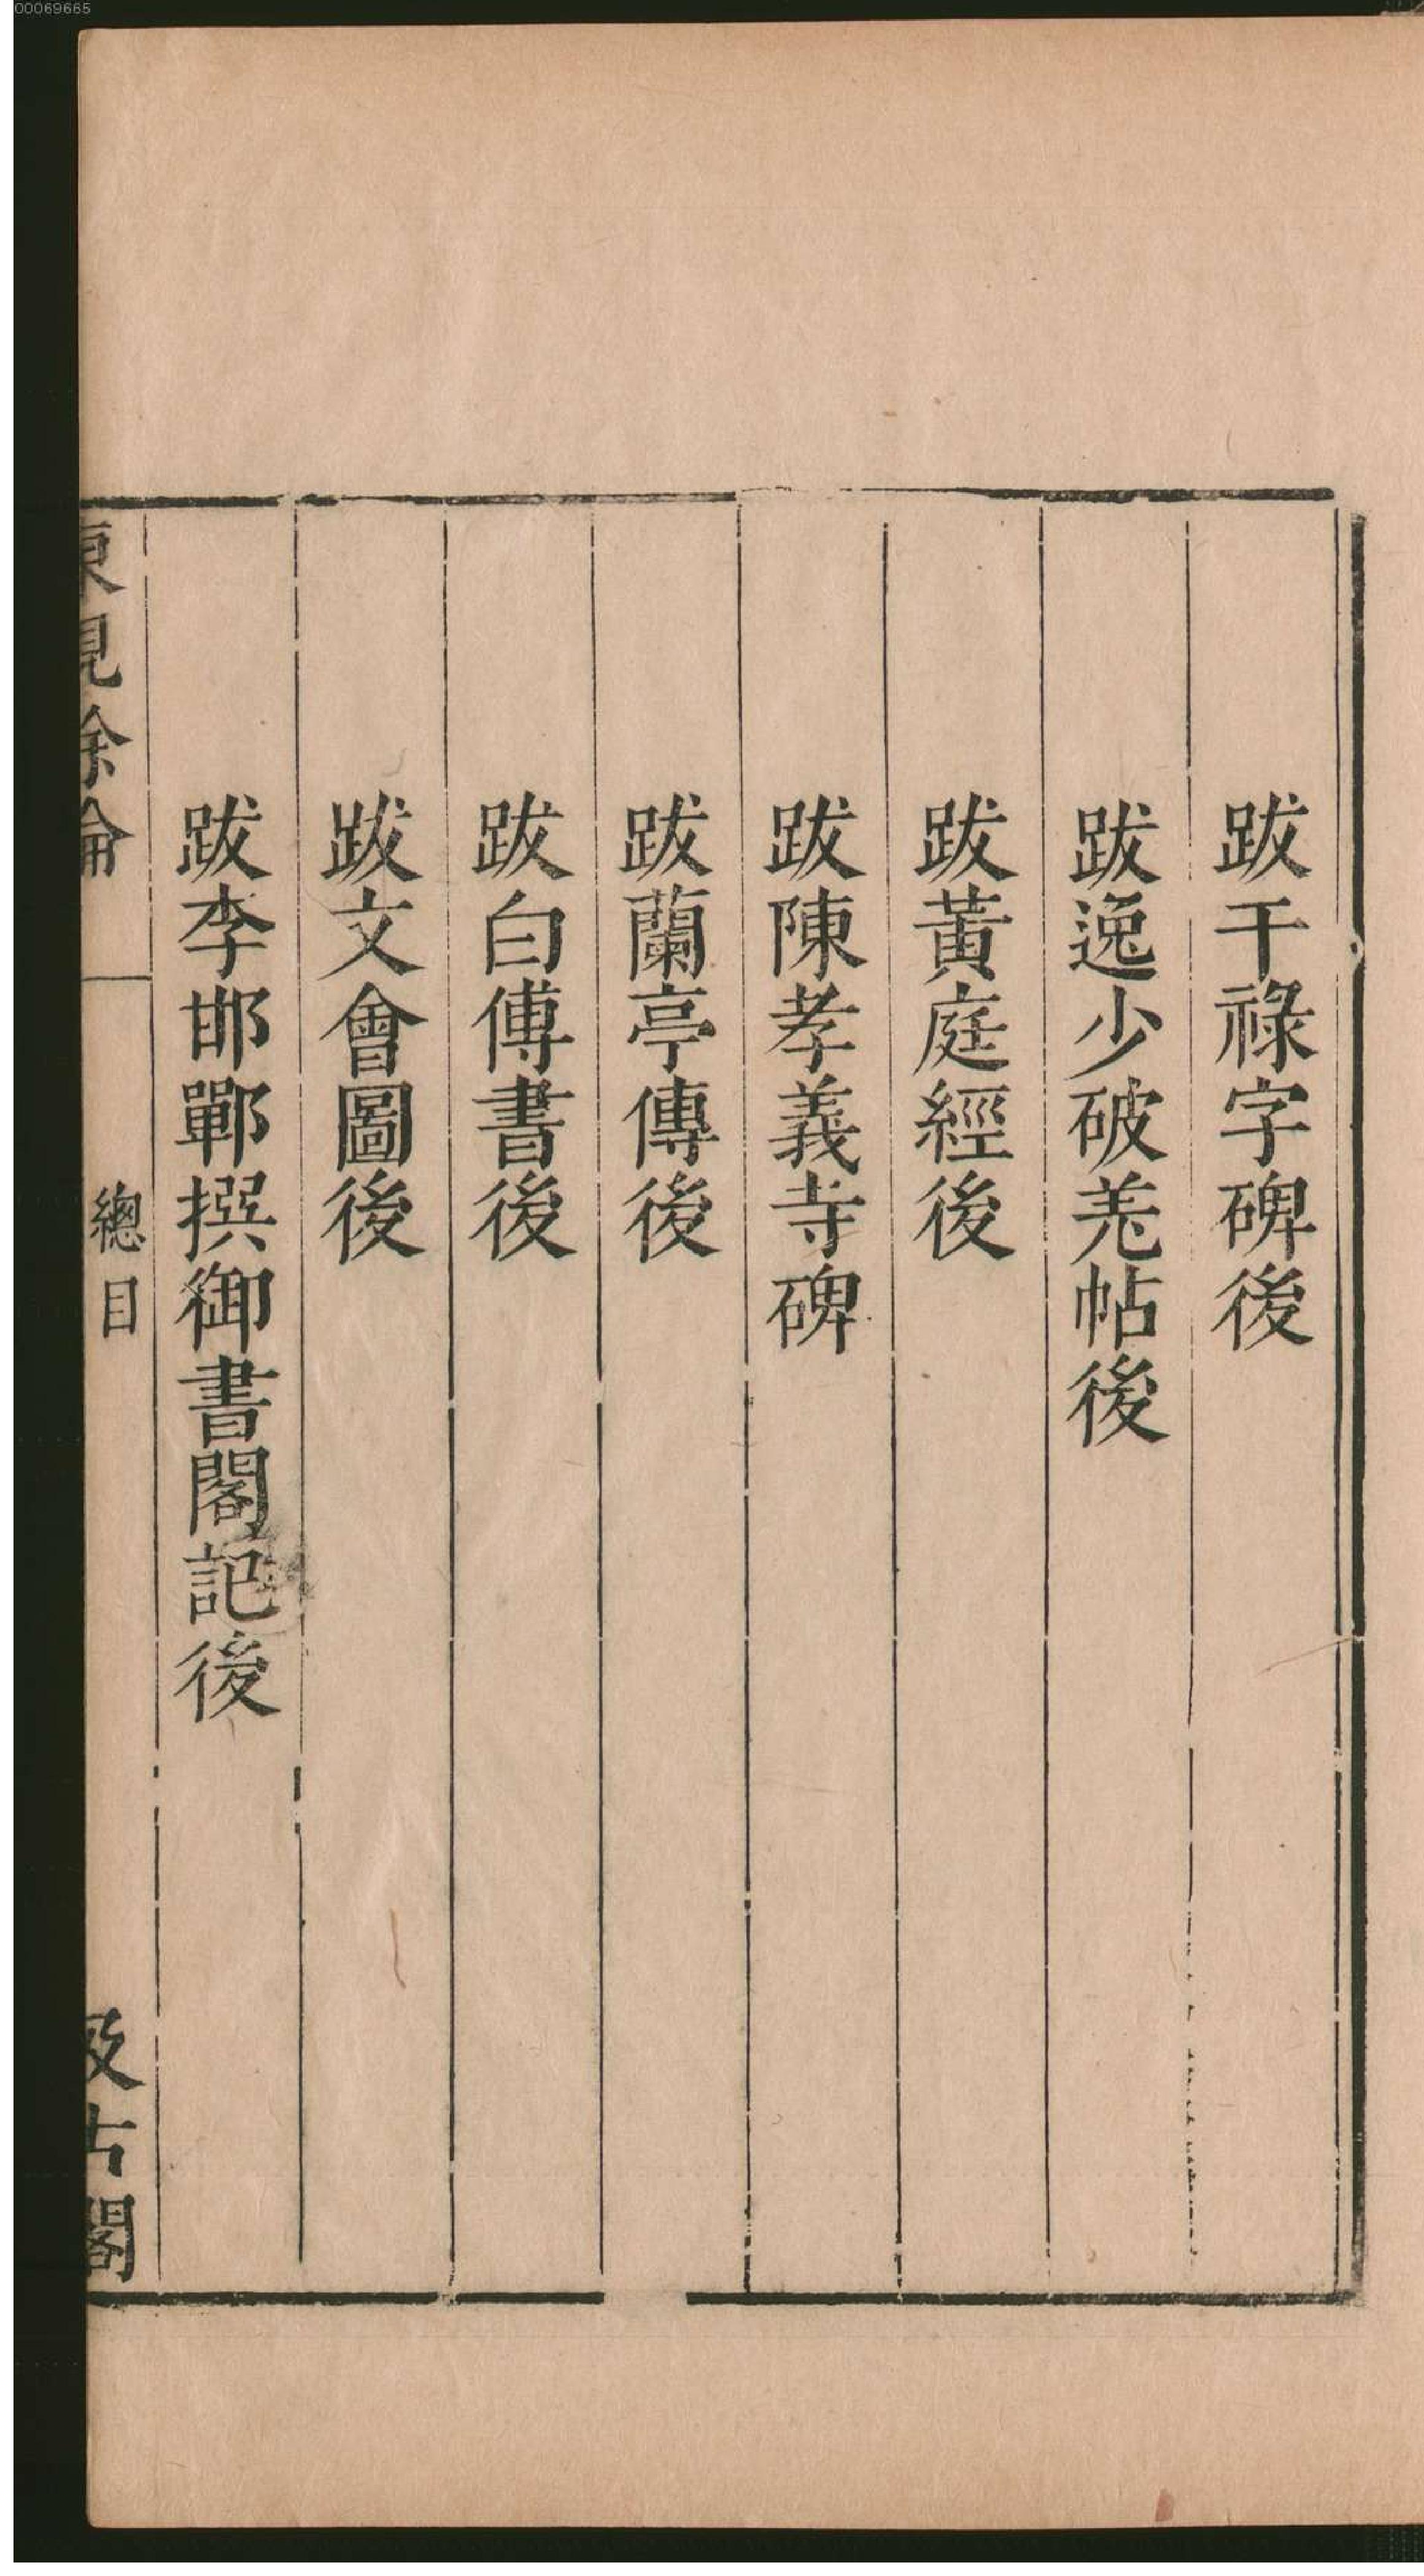 跋干祿字碑後
跋逸少破羌帖後
跋黃庭經後
跋陳孝義寺碑
跋蘭亭傳後
跋白傅書後
跋文會圖後
跋李邯鄲撰御書閣記後
東觀餘論
總目
汲古閣
00069665